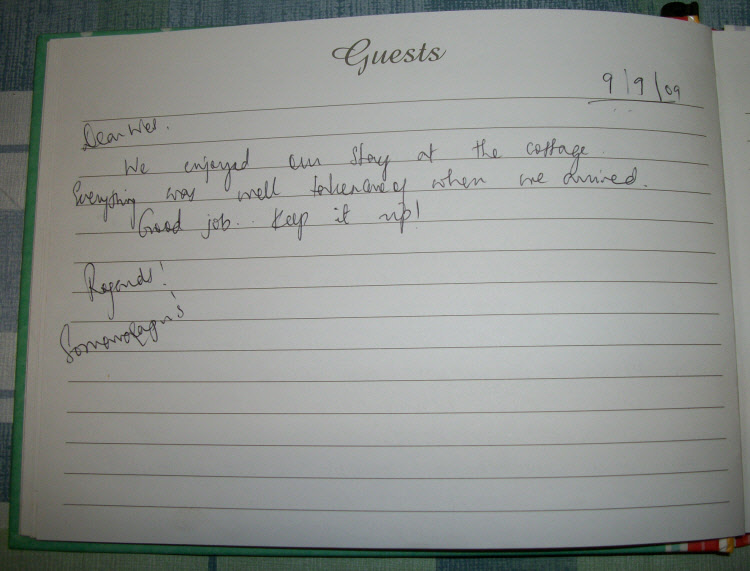 Guests
9/9/09
Dear
We enjoyed our stay at the cottage.
Everything was well taken care of when we arrived.
Good job. Keep it up!
Regards!